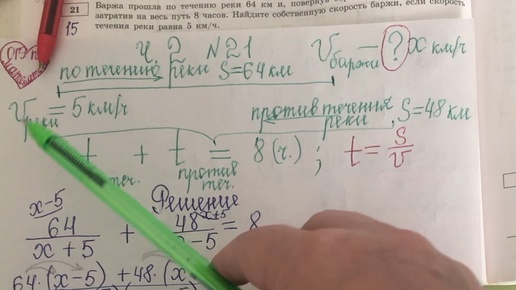 21
Баржа прошла по течению реки 64 км и, поверну
затратив на весь путь 8 часов. Найдите собственную скорость баржи, если скорость
течения реки равна 5 км/ч.
15
ОГЭ
математика
Ч. 2 N21 V баржи — ? x км/ч
по течению реки S=64 км
V реки = 5 км/ч против течения реки, S=48 км
t теч. + t против теч. = 8 (ч.) ; t = S/V
Решение
x-5 x+5
64/(x+5) + 48/ -5 = 8
64·(x-5) + 48·(x